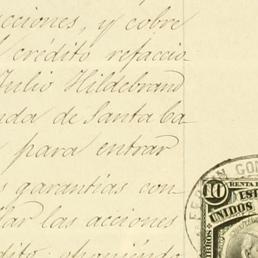 acciones, y cobre
crédito refaccio
Julio Hildebrand
nda de Santa ba
para entrar
s garantías con
dar las acciones
édito, oponiéndo
GON
10 RENTA I
EST
UNIDOS